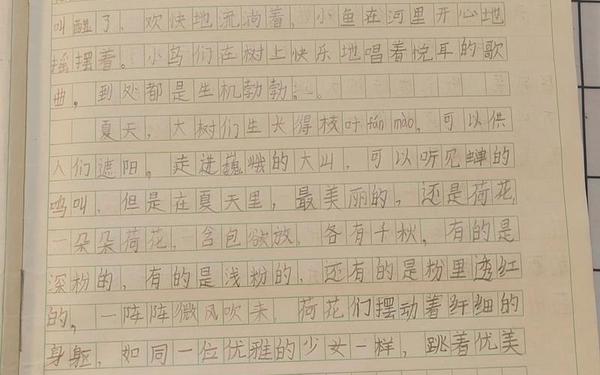 叫醒了，欢快地流淌着，小鱼在河里开心地
摇摆着。小鸟们在树上快乐地唱着悦耳的歌
曲，到处都是生机勃勃。
夏天，大树们生长得枝叶fán mào，可以供
人们遮阳。走进巍峨的大山，可以听见蝉的
鸣叫，但是在夏天里，最美丽的，还是荷花，
一朵朵荷花，含包欲放，各有千秋，有的是
深粉的，有的是浅粉的，还有的是粉里透红
的，一阵阵微风吹来，荷花们摆动着纤细的
身躯，如同一位优雅的少女一样，跳着优美